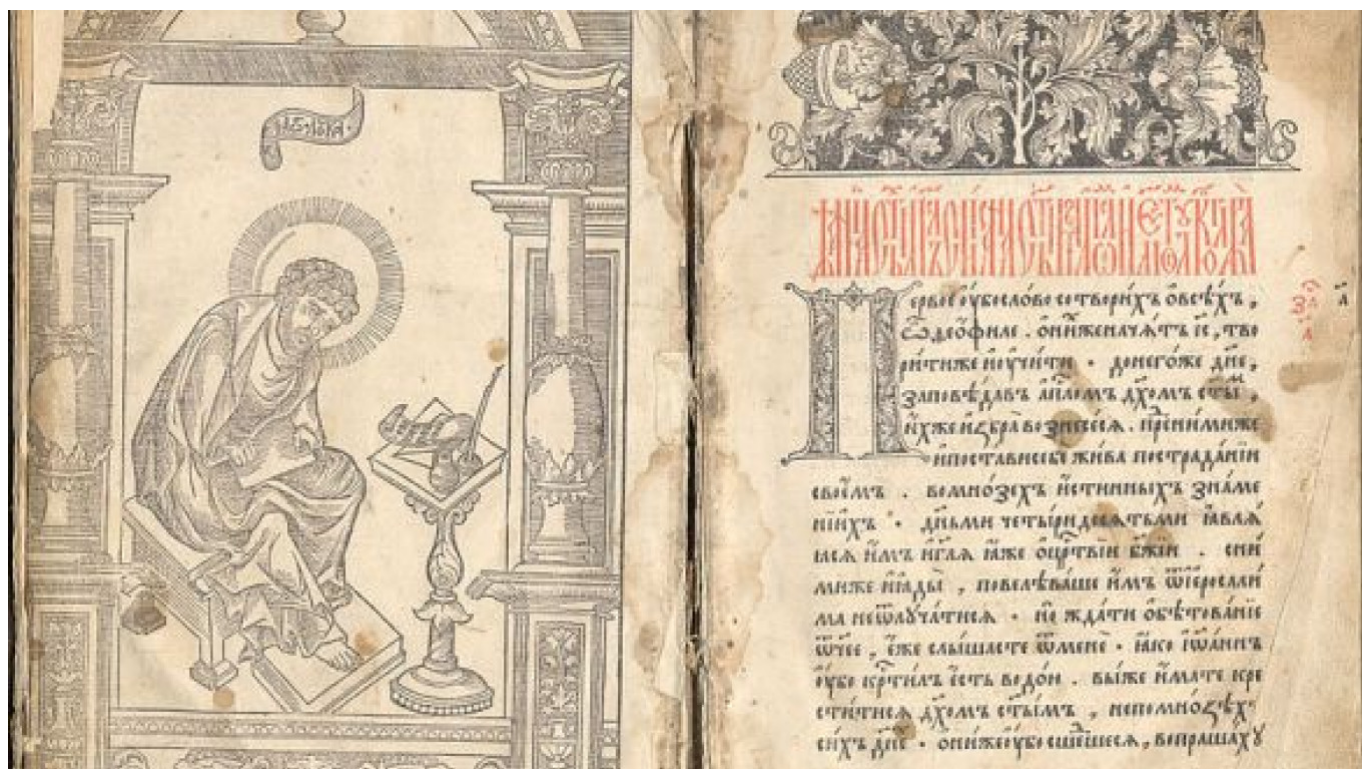 лꙋка
Первое ᲂу҆бо слово сотворихъ ѡ҆ всѣ́хъ,
ѽ, ѳео́филе. ѡ҆ ни́хже начѧ́тъ і҆с҃, тво
ри́ти же и҆ ᲂу҆чи́ти . до него́же дн҃е,
заповѣ́давъ а҆пⷭ҇ломъ дх҃омъ ст҃ыⷨ,
и҆́хже и҆ꙁбра̀ вознесе́сѧ. пред̾ ни́миже
и҆ поста́ви себѐ жи́ва по страда́нїи
свое́мъ . во мно́зехъ и҆́стинныхъ зна́ме
нїи́хъ . дн҃ьми четы́ридесѧтьми ꙗ҆влѧ́
ꙗсѧ и҆̀мъ и҆ гл҃ѧ ꙗ҆́же ѡ҆ црⷭ҇твїи бж҃їи . сни́
миже и҆ ꙗ҆ды̀ , повелѣва́ше и҆̀мъ ѿ і҆еросали́
ма не ѿлꙋча́тисѧ . но жда́ти ѡ҆бѣтова́нїе
ѿч҃ее , є҆́же слы́шасте ѿ менє̀ . ꙗ҆́ко і҆ѡа́ннъ
ᲂу҆́бо крⷭ҇ти́лъ є҆́сть водо́ю . вы́же и҆́мате кре
сти́тисѧ дх҃омъ ст҃ы́мъ , не по мно́ꙁѣхъ
си́хъ дн҃е . ѡ҆ни́же ᲂу҆́бо сше́дшесѧ, вопраша́хꙋ